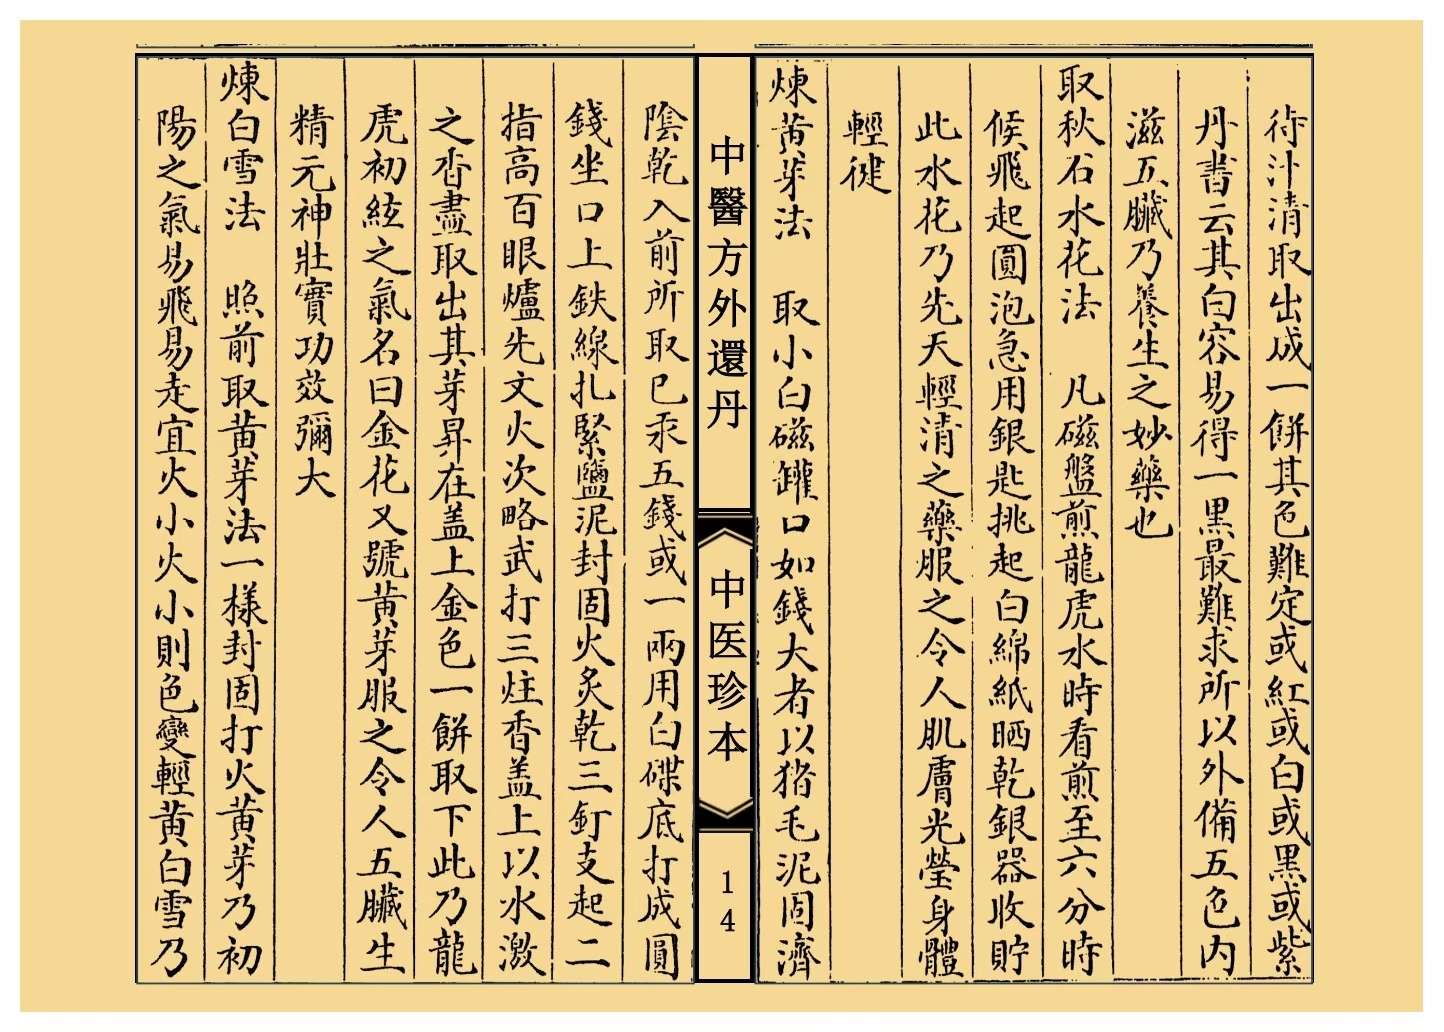 待汁清取出成一餅其色難定或紅或白或黑或紫
丹書云其白容易得一黑最難求所以外備五色内
滋五臟乃養生之妙藥也
取秋石水花法　凡磁盤煎龍虎水時看煎至六分時
候飛起圓泡急用銀匙挑起白綿紙晒乾銀器收貯
此水花乃先天輕清之藥服之令人肌膚光瑩身體
輕健
煉黃芽法　取小白磁罐口如錢大者以猪毛泥固濟
中醫方外還丹
中医珍本
14
陰乾入前所取已汞五錢或一兩用白碟底打成圓
錢坐口上鉄線扎緊鹽泥封固火炙乾三釘支起二
指高百眼爐先文火次略武打三炷香盖上以水激
之香盡取出其芽昇在盖上金色一餅取下此乃龍
虎初絃之氣名曰金花又號黃芽服之令人五臟生
精元神壯實功效彌大
煉白雪法　照前取黃芽法一樣封固打火黃芽乃初
陽之氣易飛易走宜火小火小則色變輕黃白雪乃